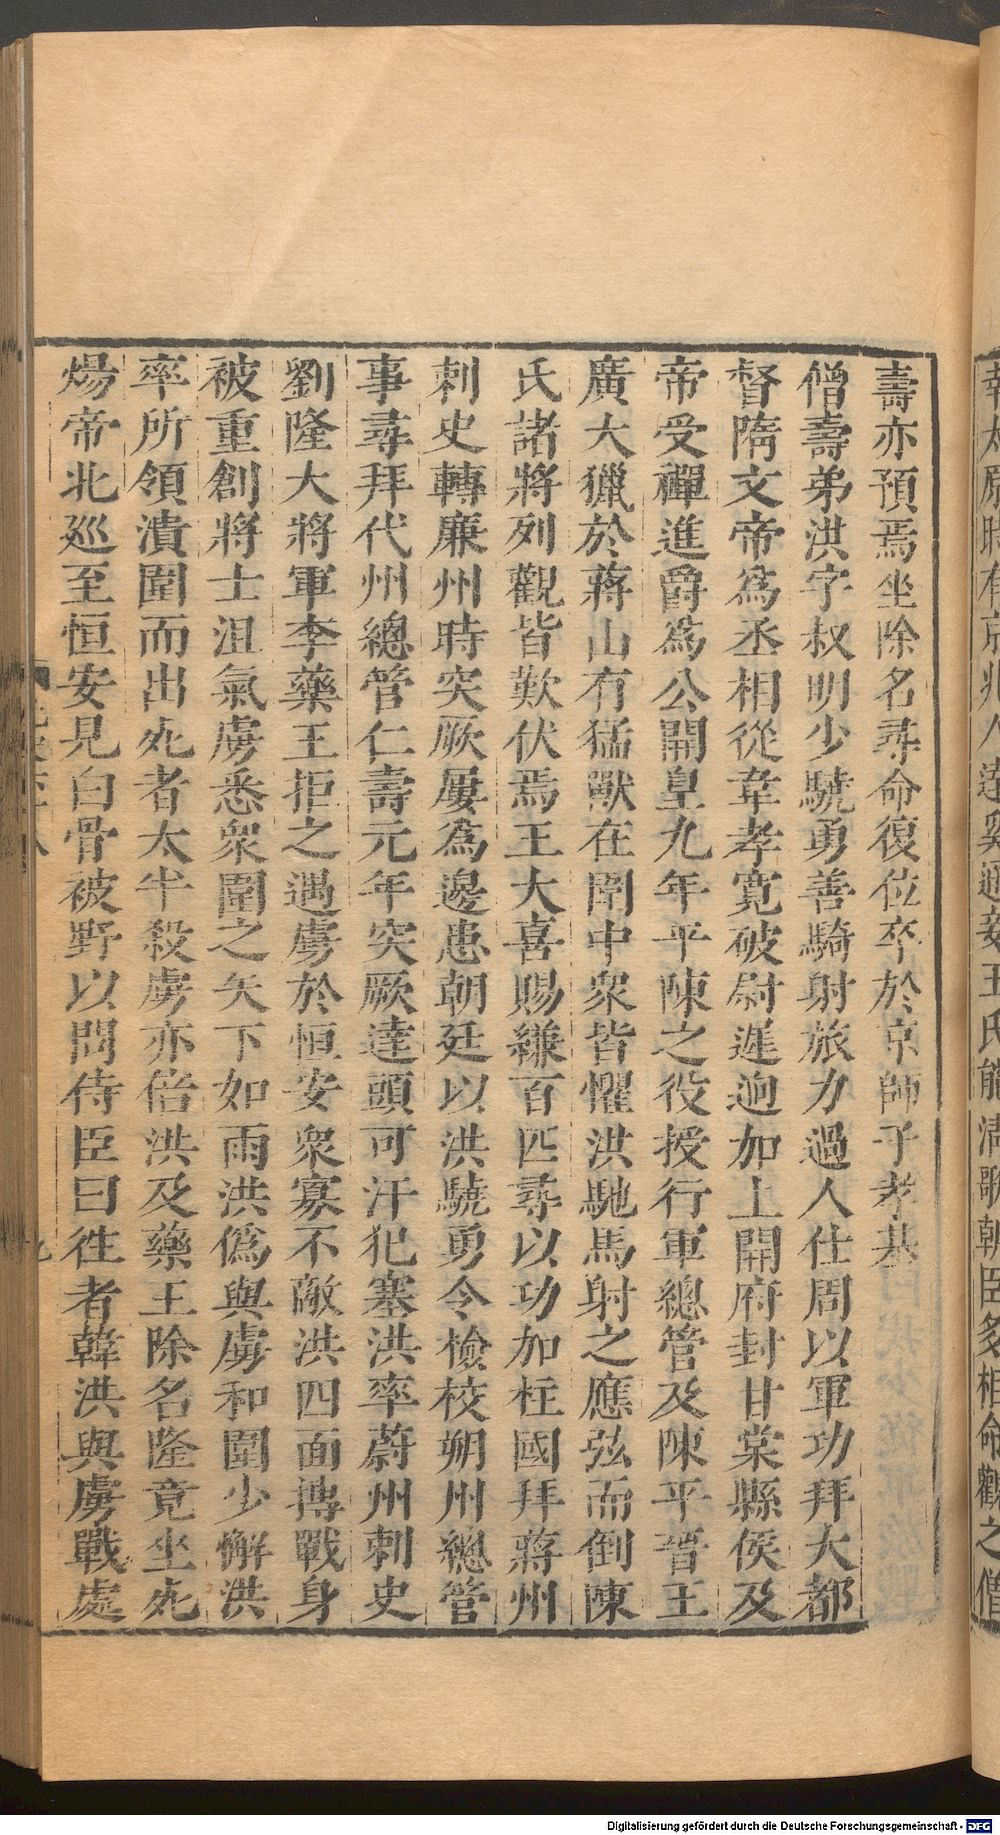 壽亦預焉坐除名尋命復位卒於京師子孝基
僧壽弟洪字叔明少驍勇善騎射旅力過人仕周以軍功拜大都
督隋文帝爲丞相從韋孝寬破尉遲迥加上開府封甘棠縣侯及
帝受禪進爵爲公開皇九年平陳之役授行軍總管及陳平晉王
廣大獵於蔣山有猛獸在圍中衆皆懼洪馳馬射之應弦而倒陳
氏諸將列觀皆歎伏焉王大喜賜縑百匹尋以功加柱國拜蔣州
刺史轉廉州時突厥屢爲邊患朝廷以洪驍勇令檢校朔州總管
事尋拜代州總管仁壽元年突厥達頭可汗犯塞洪率蔚州刺史
劉隆大將軍李藥王拒之遇虜於恒安衆寡不敵洪四面搏戰身
被重創將士沮氣虜悉衆圍之矢下如雨洪僞與虜和圍少懈洪
率所領潰圍而出死者太半殺虜亦倍洪及藥王除名隆竟坐死
煬帝北巡至恒安見白骨被野以問侍臣曰徃者韓洪與虜戰處
太原時有京兆人達奚通妾王氏能清歌朝臣多相命觀之僧
Digitalisierung gefördert durch die Deutsche Forschungsgemeinschaft - DFG